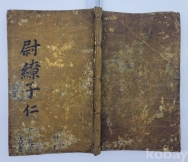 尉繚子 仁
kobay